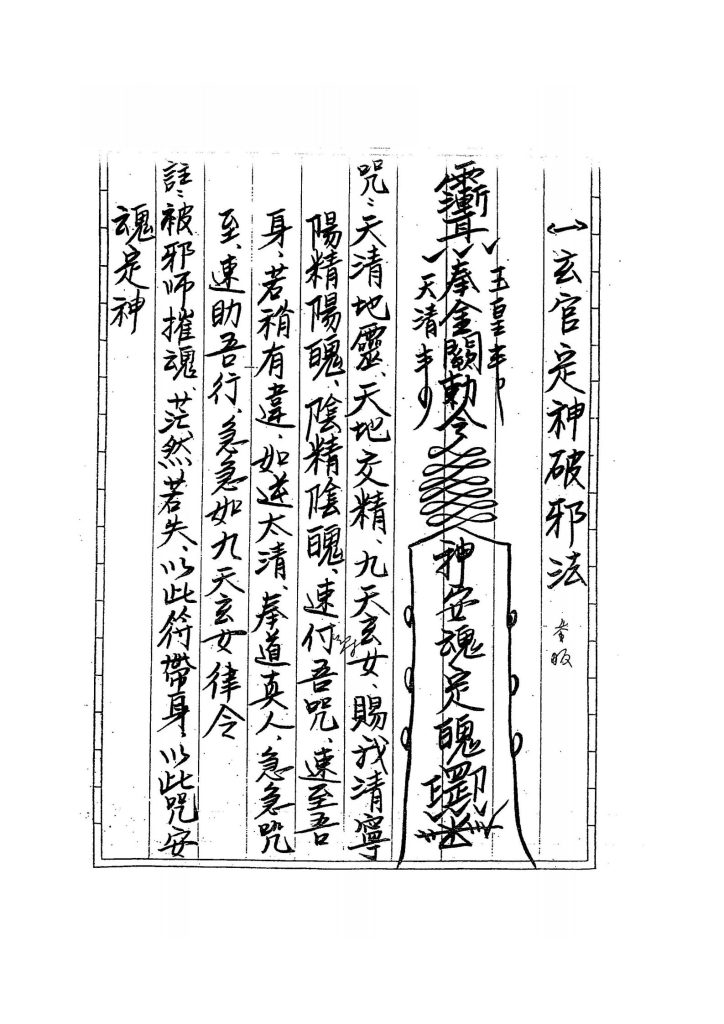 ㈠玄官定神破邪法
玉皇
奉金闕勅令
天清
神安魂定魄罡
咒：天清地靈、天地交精、九天玄女、賜我清寧
陽精陽魄、陰精陰魄、速付吾咒、速至吾
身、若稍有違、如逆太清、奉道真人、急急咒
至、速助吾行、急急如九天玄女律令
註：被邪师摧魂、茫然若失、以此符帶身、以此咒安
魂定神